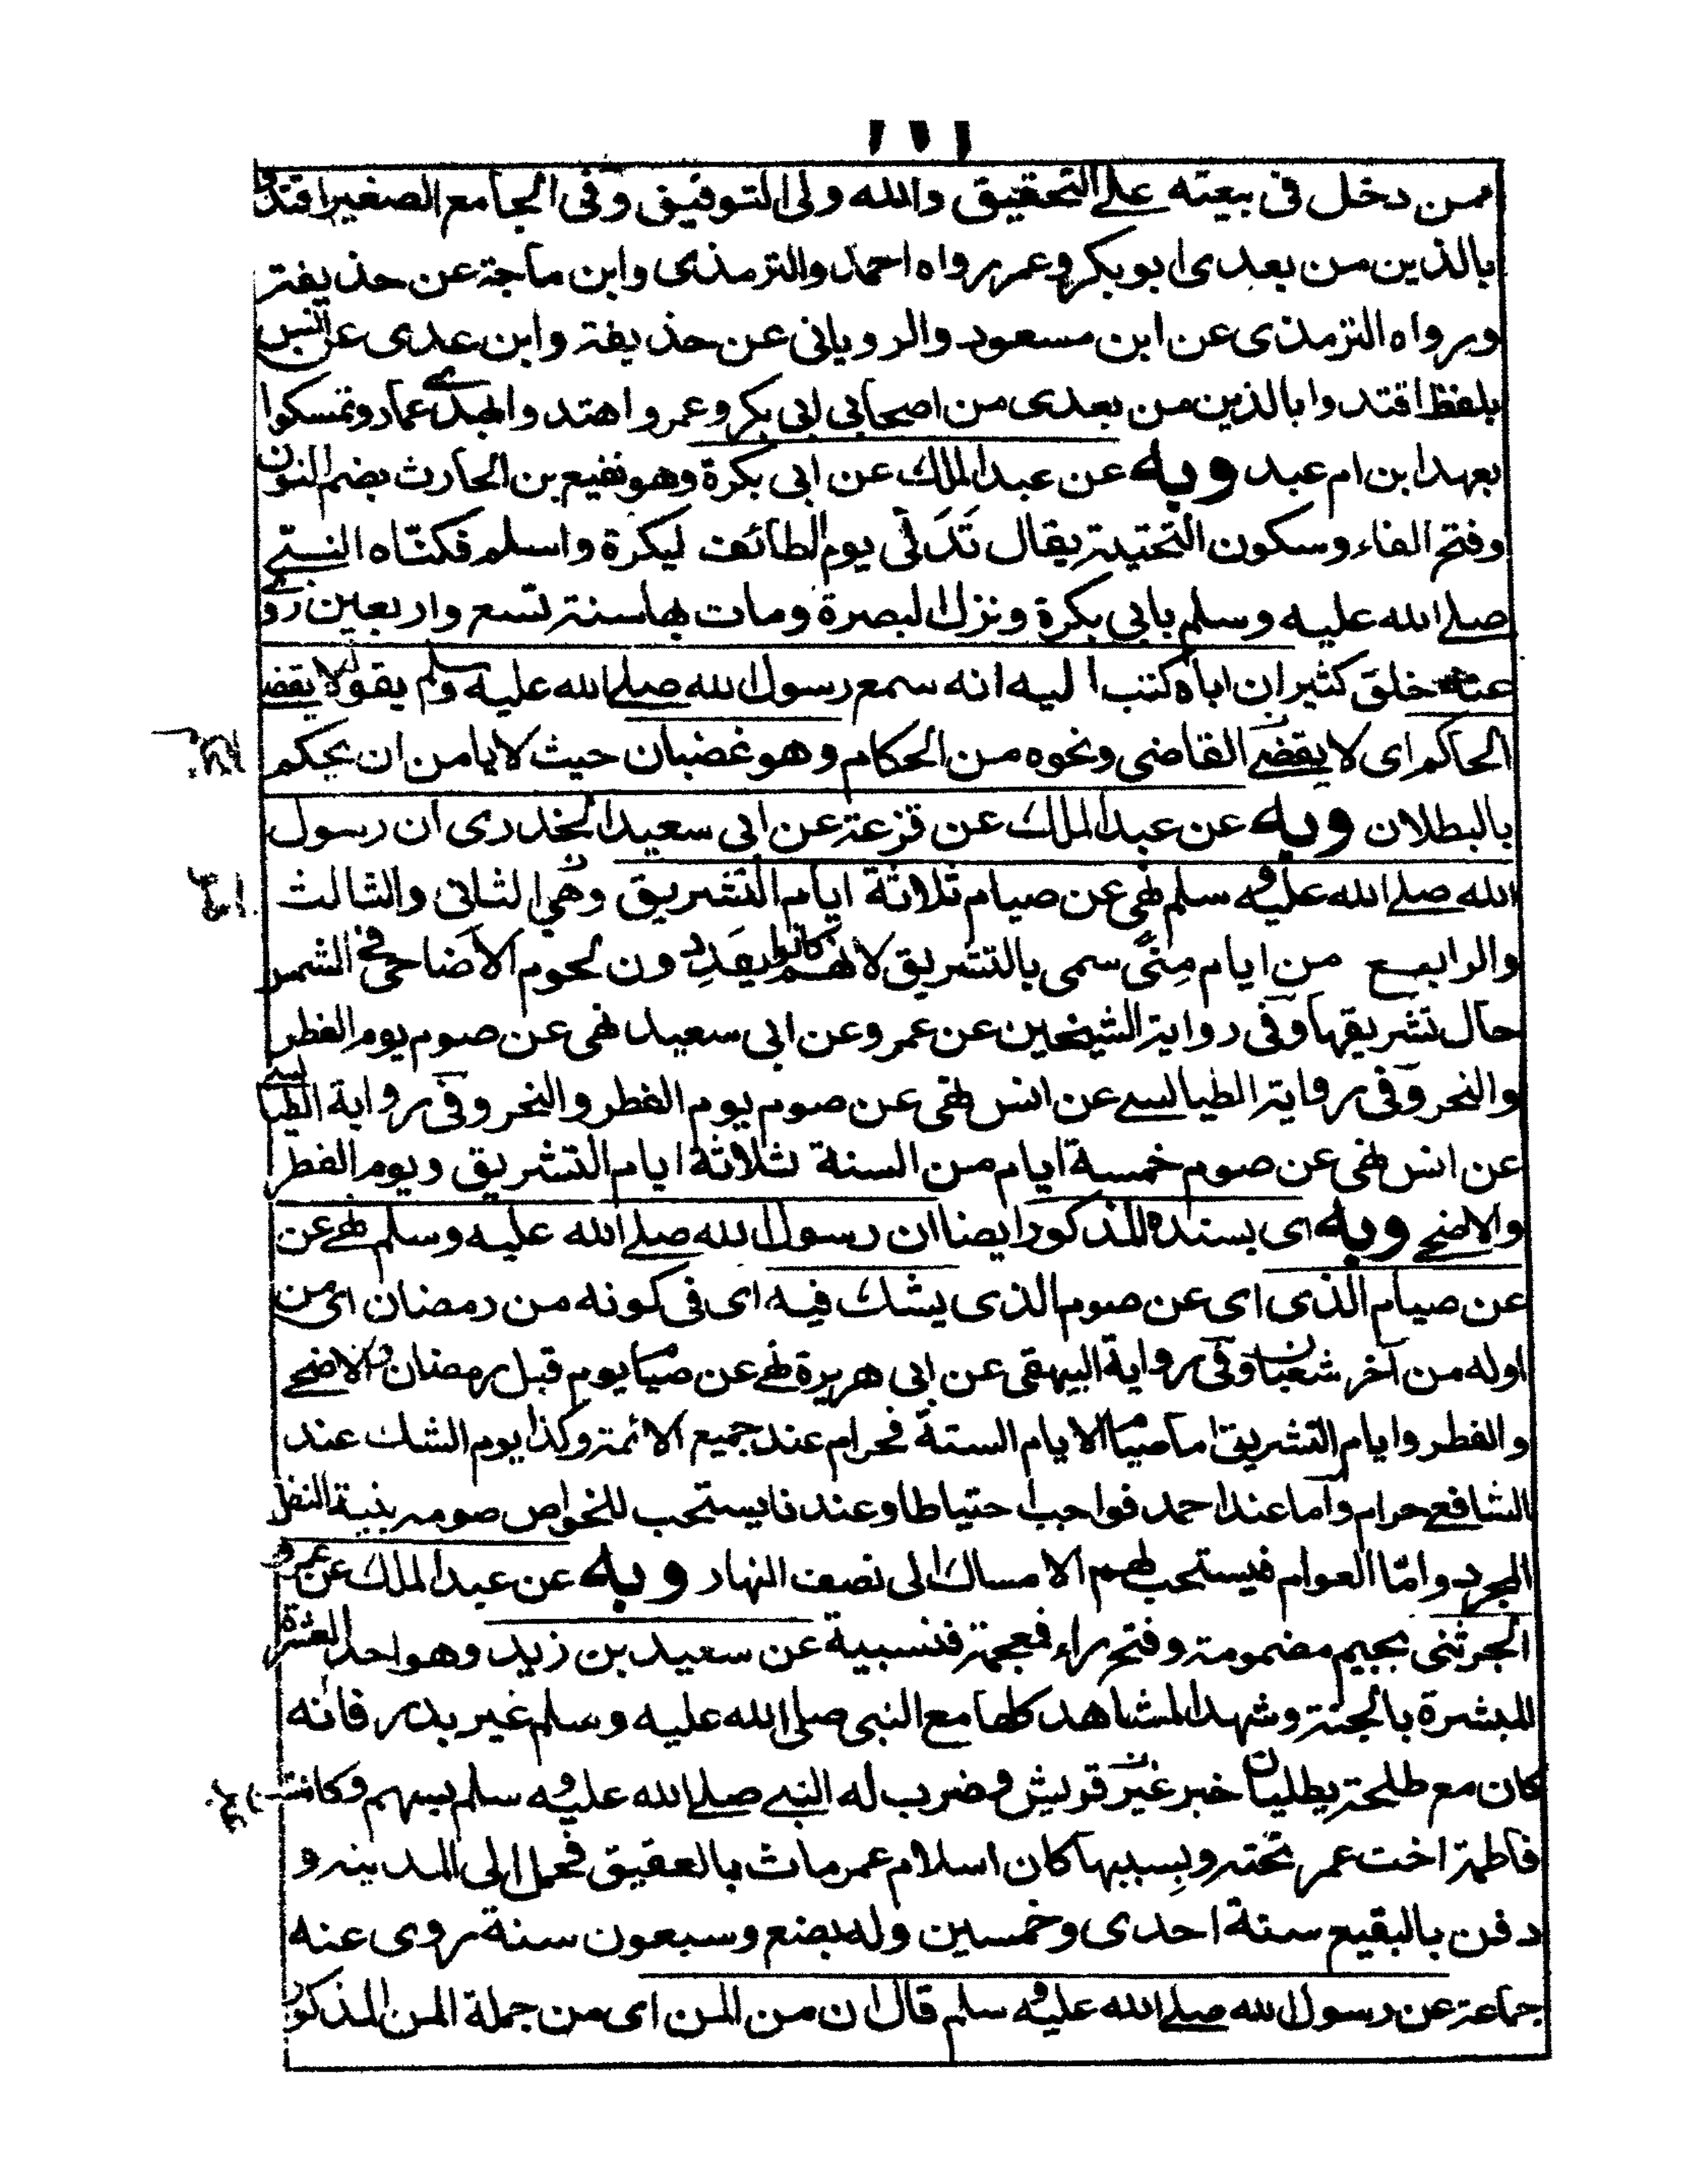 ١١١
ممن دخل فى بيعته على التحقيق والله ولى التوفيق وفى الجامع الصغير اقتدوا
بالذين من بعدى ابو بكر وعمر رواه احمد والترمذى وابن ماجة عن حذيفة
ورواه الترمذى عن ابن مسعود والرويانى عن حذيفة وابن عدى عن انس
بلفظ اقتدوا بالذين من بعدى من اصحابى ابى بكر وعمر واهتدوا بهدى عمار وتمسكوا
بعهد ابن ام عبد وبه عن عبد الملك عن ابى بكرة وهو نفيع بن الحارث بضم النون
وفتح الفاء وسكون التحتية يقال تَدَلّى يوم الطائف ببكرة واسلم فكنّاه النبى
صلى الله عليه وسلم بابى بكرة ونزل البصرة ومات بها سنة تسع واربعين روى
عنه خلق كثير ان اباه كتب اليه انه سمع رسول الله صلى الله عليه وسلم يقول لا يقضى
الحاكم اى لا يقضى القاضى ونحوه من الحكام وهو غضبان حيث لا يامن ان يحكم
بالبطلان وبه عن عبد الملك عن قزعة عن ابى سعيد الخدرى ان رسول
الله صلى الله عليه وسلم نهى عن صيام ثلاثة ايام التشريق وهى الثانى والثالث
والرابع من ايام مِنًى سمى بالتشريق لانهم كانوا يقددون لحوم الاضاحى فى الشمس
حال تشريقها وفى رواية الشيخين عن عمر وعن ابى سعيد نهى عن صوم يوم الفطر
والنحر وفى رواية الطيالسى عن انس نهى عن صوم يوم الفطر والنحر وفى رواية الطيالسى
عن انس نهى عن صوم خمسة ايام من السنة ثلاثة ايام التشريق ويوم الفطر
والاضحى وبه اى بسنده المذكور ايضا ان رسول الله صلى الله عليه وسلم نهى عن
عن صيام الذى اى عن صوم الذى يشك فيه اى فى كونه من رمضان اى من
اوله من آخر شعبان وفى رواية البيهقى عن ابى هريرة نهى عن صيام يوم قبل رمضان والاضحى
والفطر وايام التشريق اما صيام الايام الستة فحرام عند جميع الائمة وكذا يوم الشك عند
الشافعى حرام واما عند احمد فواجب احتياطا وعندنا يستحب للخواص صومه بنية النفل
المجرد وامّا العوام فيستحب لهم الامساك الى نصف النهار وبه عن عبد الملك عن عمرو
الجرشى بجيم مضمومة وفتح راء فمعجمة فنسبية عن سعيد بن زيد وهو احد العشرة
المبشرة بالجنة وشهد المشاهد كلها مع النبى صلى الله عليه وسلم غير بدر فانه
كان مع طلحة يطلبان خبر غير قريش وضرب له النبى صلى الله عليه وسلم بسهم وكانت
فاطمة اخت عمر تحته وبسببها كان اسلام عمر مات بالعقيق فحمل الى المدينة و
دفن بالبقيع سنة احدى وخمسين وله بضع وسبعون سنة روى عنه
جماعة عن رسول الله صلى الله عليه وسلم قال ان من المن اى من جملة المن المذكور